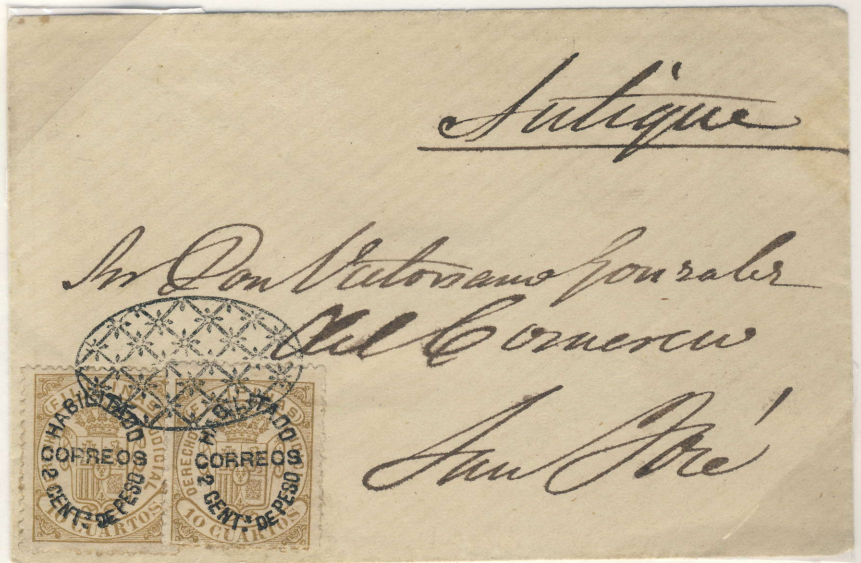 Antique
Sr Don Victoriano Gonzalez
del Comercio
San José
FILIPINAS
HABILITADO
CORREOS
2 CENT.s DE PESO
DERECHO JUDICIAL
10 CUARTOS
HABILITADO
CORREOS
2 CENT.s DE PESO
10 CUARTOS